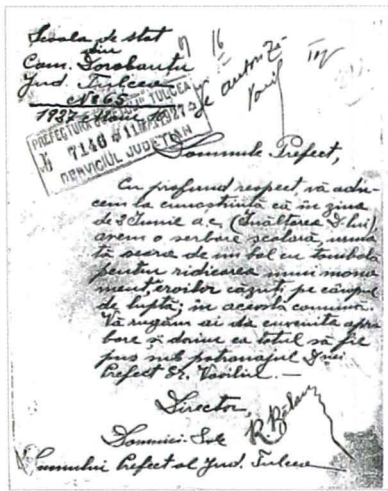 Școala de stat
din
Com. Dorobanțu
Jud. Tulcea
No 65
1927
Se autoriză
PREFECTURA JUDEȚULUI TULCEA
No 7140
SERVICIUL JUDEȚEAN
Domnule Prefect,
Cu profund respect, vă adu-
cem la cunoștință că în ziua
de 3 Iunie a.c. (Înălțarea D-lui)
avem o serbare școlară, urma
tă seara de un bal cu tombola
pentru ridicarea unui monu
ment eroilor căzuți pe câmpul
de luptă; în această comună.
Vă rugăm ai da cuvenita apro
bare și dorim ca totul să fie
pus sub patronajul Dnei
Prefect Vasiliu. —
Director,
Domniei-Sale
Domnului Prefect al Jud. Tulcea